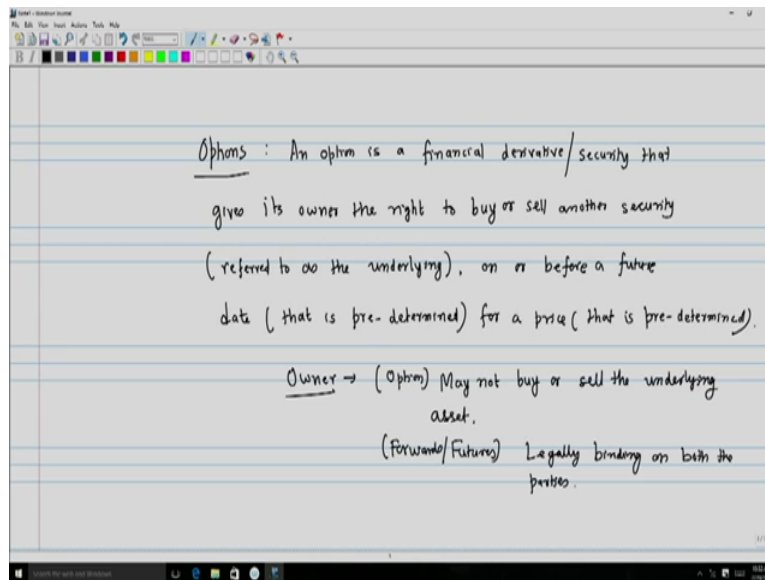 Note1 - Windows Journal
File Edit View Insert Actions Tools Help
B I
Options : An option is a financial derivative/security that
gives its owner the right to buy or sell another security
(referred to as the underlying), on or before a future
date (that is pre-determined) for a price (that is pre-determined).
Owner → (Option) May not buy or sell the underlying
asset.
(Forwards/Futures) Legally binding on both the
parties.
Search the web and Windows